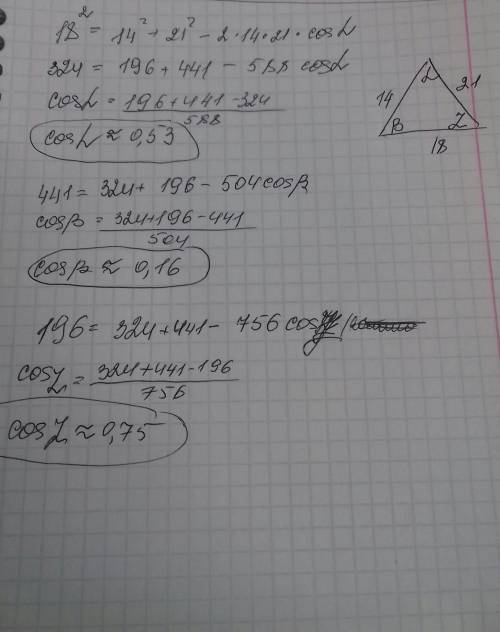 18² = 14² + 21² - 2·14·21·cosα
324 = 196 + 441 - 588 cosα
cosα = (196+441-324)/588
cosα ≈ 0,53
α
14
21
β
γ
18
441 = 324+ 196 - 504cosβ
cosβ = (324+196-441)/504
cosβ ≈ 0,16
196 = 324+441 - 756 cosγ
cosγ = (324+441-196)/756
cosγ ≈ 0,75